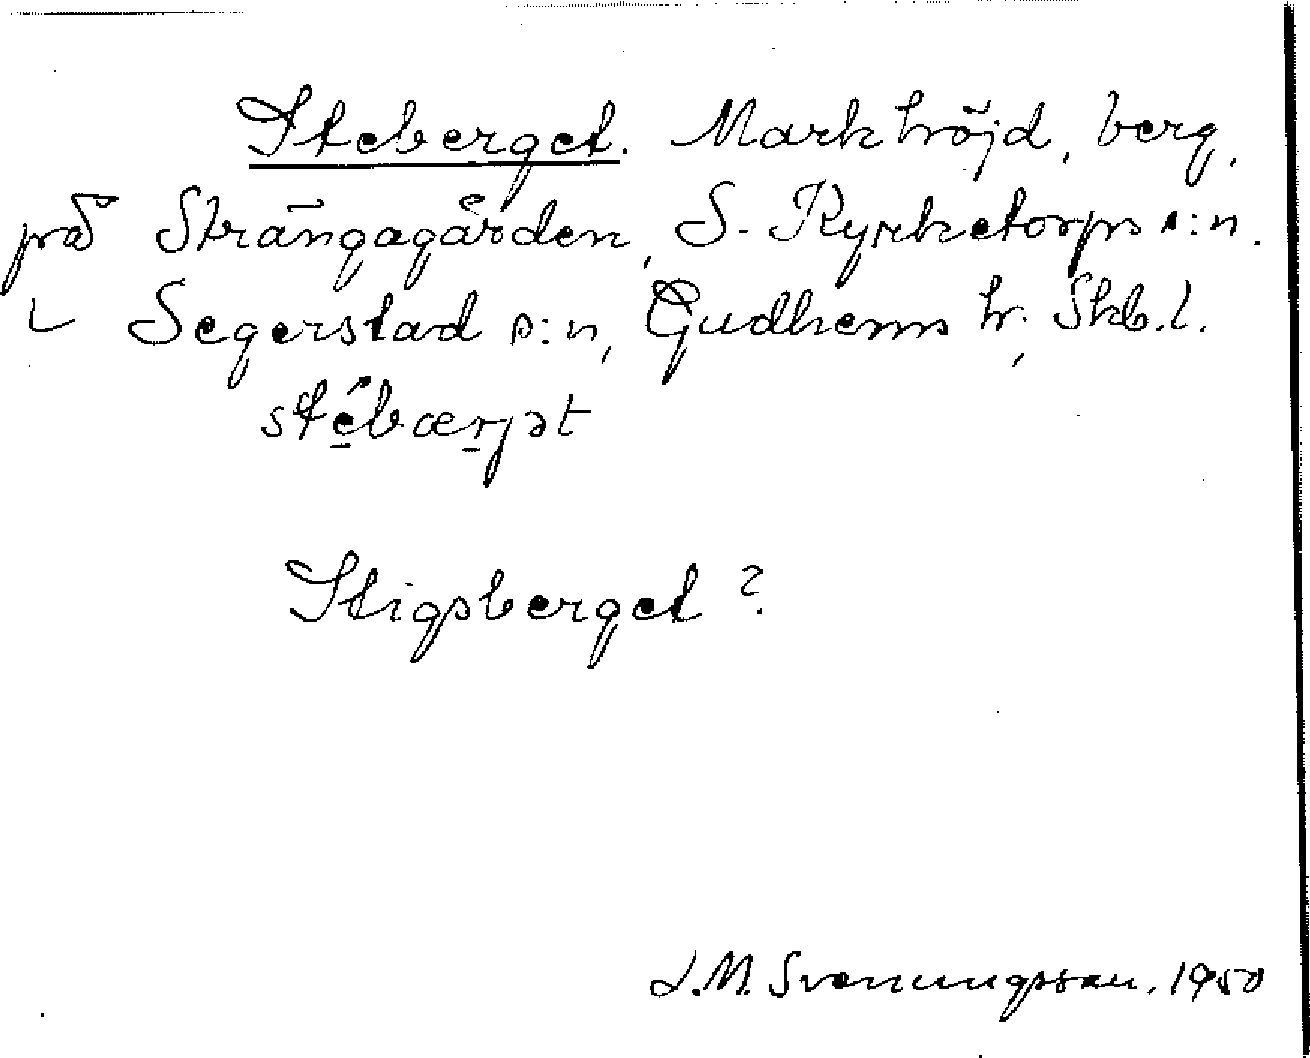 Steberget. Markhöjd, berg,
på Strängagården, S. Kyrketorps s:n.
L Segerstad s:n, Gudhems hr, Skb.l.
stébærjət
Stigsberget ?
J.M. Svenungsson. 1950